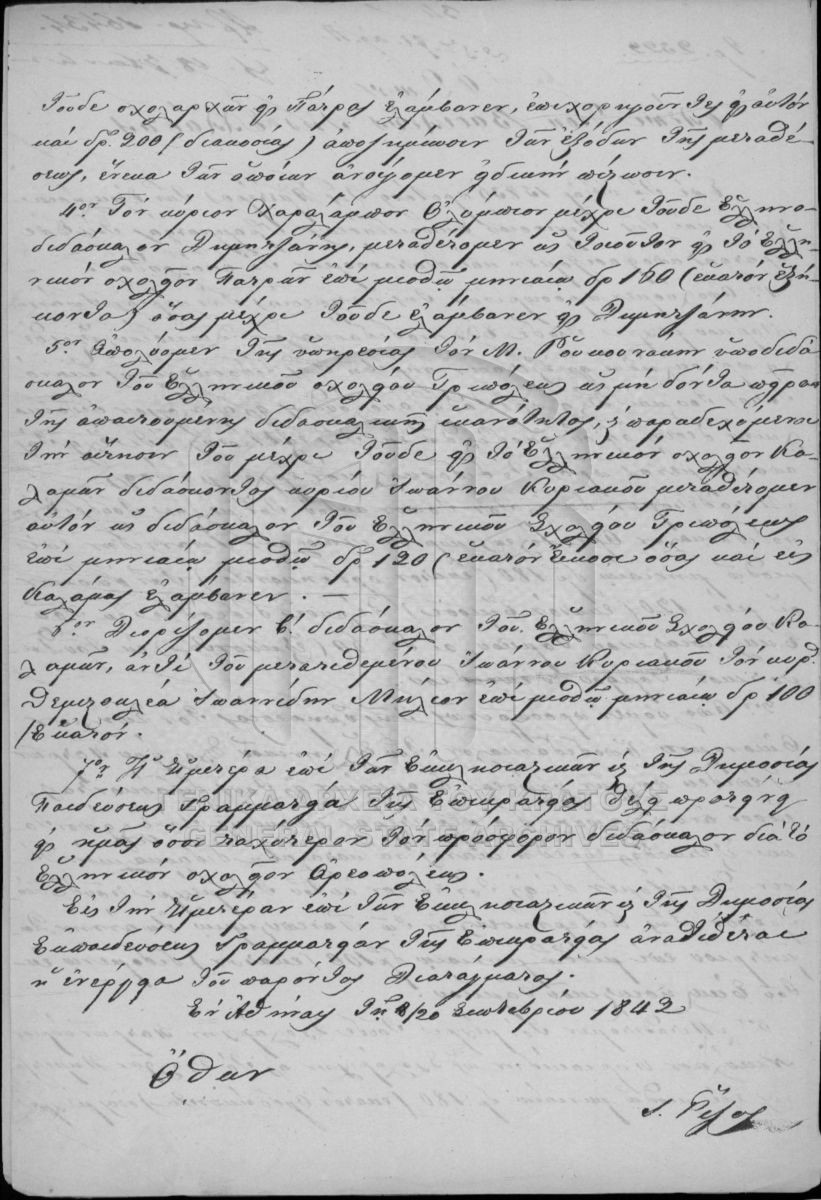 τοῦδε σχολαρχῶν ἐν Πάτραις ἐλάμβανεν, ἐπιχορηγοῦντες ἐν αὐτὸν
καὶ δρ. 200 (διακοσίας) ἀποζημίωσιν τῶν ἐξόδων τῆς μεταθέ-
σεως, ἕνεκα τῶν ὁποίων ἀνοίγομεν εἰδικὴν πίστωσιν.
4ον Τὸν κύριον Χαραλάμπον Ὀλύμπιον μέχρι τοῦδε Ἑλληνο-
διδάσκαλον Δημητζάνης, μεταθέτομεν ὡς τοιοῦτον εἰς τὸ Ἑλλη-
νικὸν σχολεῖον Πατρῶν ἐπὶ μισθῷ μηνιαίῳ δρ 160 (ἑκατὸν ἑξή-
κοντα) ὅσας μέχρι τοῦδε ἐλάμβανεν ἐν Δημητζάνῃ.
5ον Ἀπολύομεν τῆς ὑπηρεσίας τὸν Μ. ὑποδιδά-
σκαλον τοῦ Ἑλληνικοῦ σχολείου Τριπόλεως ὡς μὴ δόντα πεῖραν
τῆς ἀπαιτουμένης διδασκαλικῆς ἱκανότητος, καὶ παραδεχόμενοι
τὴν αἴτησιν τοῦ μέχρι τοῦδε ἐν τῷ Ἑλληνικὸν σχολεῖον Κα-
λαμῶν διδάσκοντος κυρίου Ἰωάννου Κυριακοῦ μεταθέτομεν
αὐτὸν ὡς διδάσκαλον τοῦ Ἑλληνικοῦ Σχολείου Τριπόλεως
ἐπὶ μηνιαίῳ μισθῷ δρ 120 (ἑκατὸν εἴκοσι ὅσας καὶ εἰς
Καλάμας ἐλάμβανεν. —
6ον Διορίζομεν β΄. διδάσκαλον τοῦ Ἑλληνικοῦ Σχολείου Κα-
λαμῶν, ἀντὶ τοῦ μετατιθεμένου Ἰωάννου Κυριακοῦ τὸν κύρ.
Θεμιστοκλέα Ἰωαννίδην Μήλιον ἐπὶ μισθῷ μηνιαίῳ δρ 100
/Ἑκατόν.
7ον Ἡ Ὑμετέρα ἐπὶ τῶν Ἐκκλησιαστικῶν καὶ τῆς Δημοσίας
Παιδεύσεως Γραμματεία τῆς Ἐπικρατείας θέλει προτείνει
εἰς ἡμᾶς ὅσον ταχύτερον τὸν πρόσφορον διδάσκαλον διὰ τὸ
Ἑλληνικὸν σχολεῖον Ἀρεοπόλεως.
Εἰς τὴν Ὑμετέραν ἐπὶ τῶν Ἐκκλησιαστικῶν καὶ τῆς Δημοσίας
Ἐκπαιδεύσεως Γραμματείαν τῆς Ἐπικρατείας ἀνατίθεται
ἡ ἐνέργεια τοῦ παρόντος Διατάγματος.
Ἐν Ἀθήναις τῇ 8/20 Σεπτεμβρίου 1842
Ὄθων
Ι. Ῥίζος
ΓΕΝΙΚΑ ΑΡΧΕΙΑ ΤΟΥ ΚΡΑΤΟΥΣ
GENERAL STATE ARCHIVES